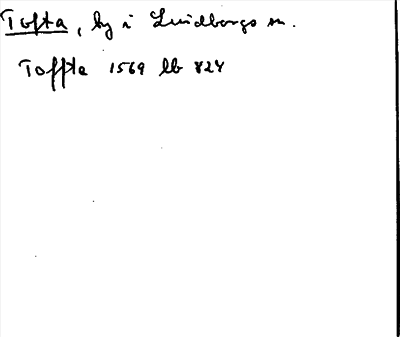 Tofta, by i Lindbergs sn.
Toffte 1569 lb 824